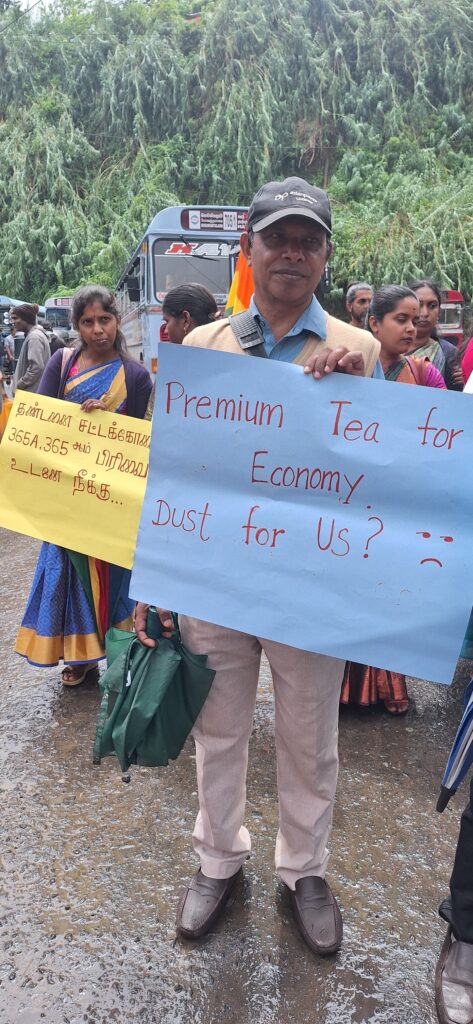 705/1
தண்டனை சட்டக்கோ
365A, 365 ஆம் பிரிவை
உடனே நீக்கு...
Premium Tea for
Economy.
Dust for Us?